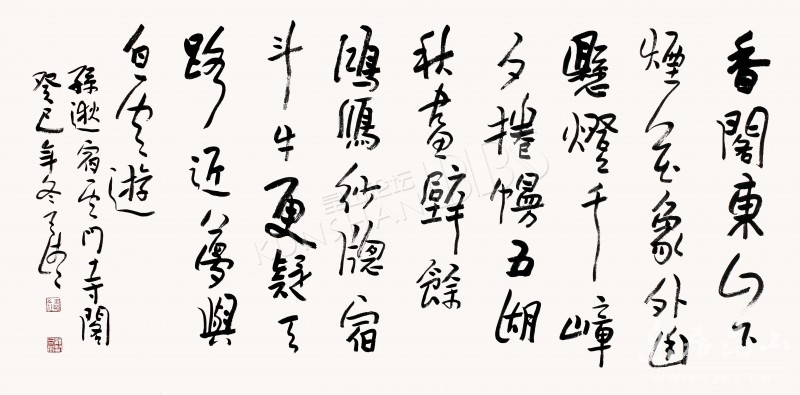 香閣東山下
煙花象外幽
懸燈千嶂
夕捲幔五湖
秋畫壁餘
鴻鴈紗牕宿
斗牛更疑天
路近夢與
白雲遊
孫逖宿雲門寺閣
癸巳年冬
KUNSHAN